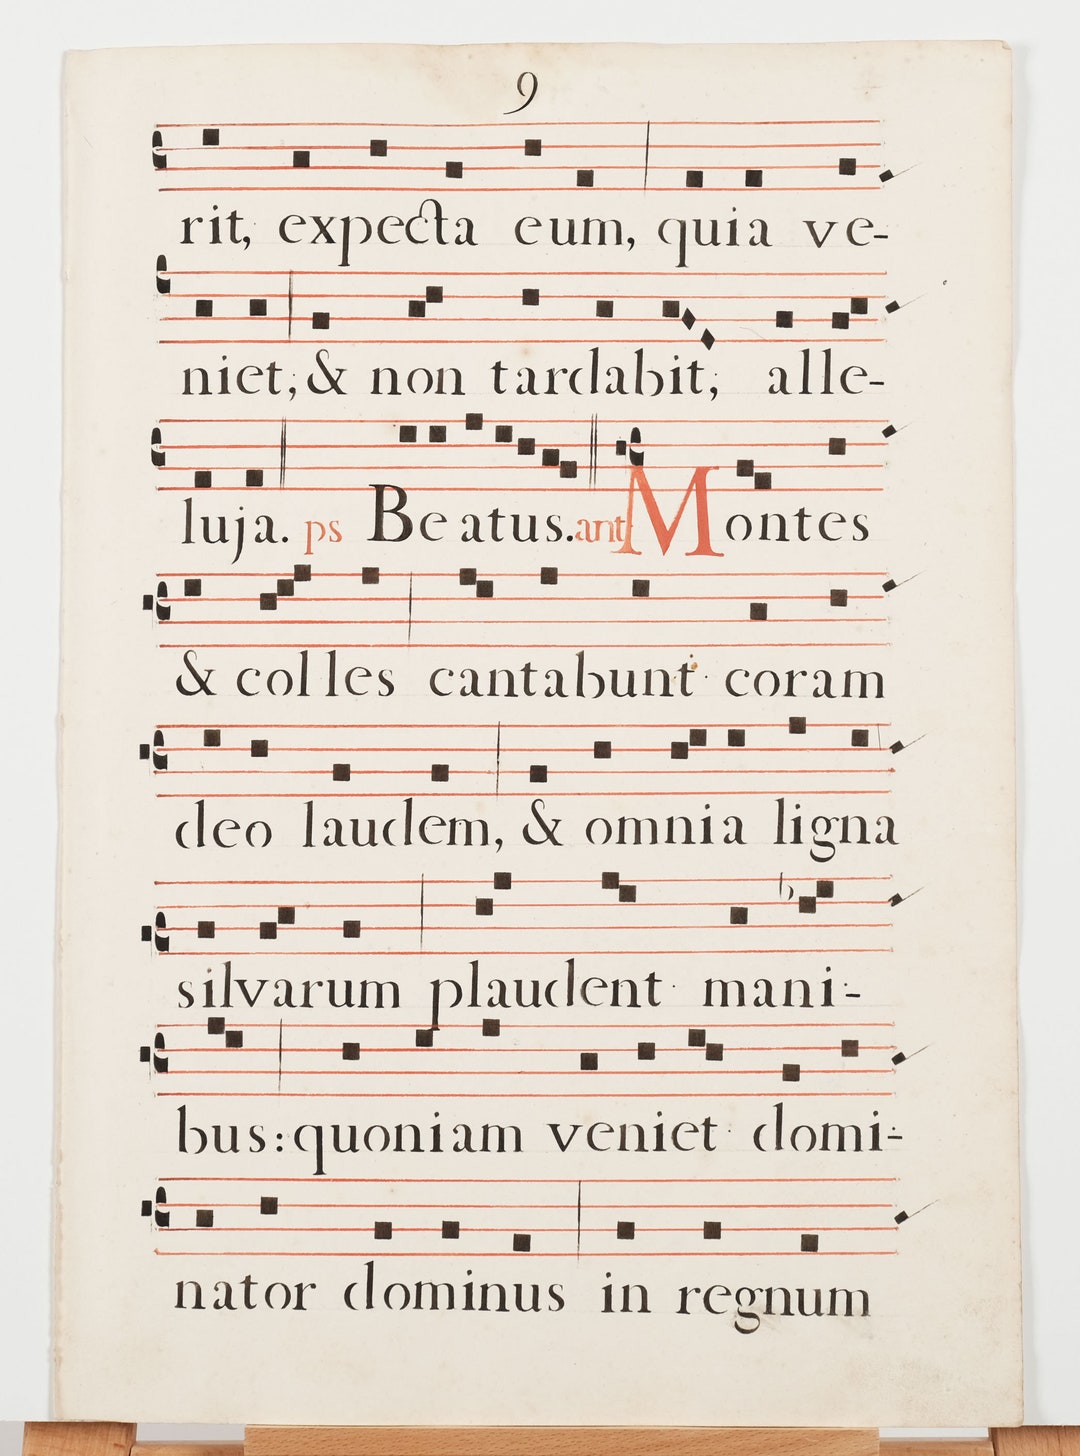 9
rit, expecta eum, quia ve-
niet, & non tardabit, alle-
luja. ps Beatus. ant Montes
& colles cantabunt coram
deo laudem, & omnia ligna
silvarum plaudent mani-
bus: quoniam veniet domi-
nator dominus in regnum